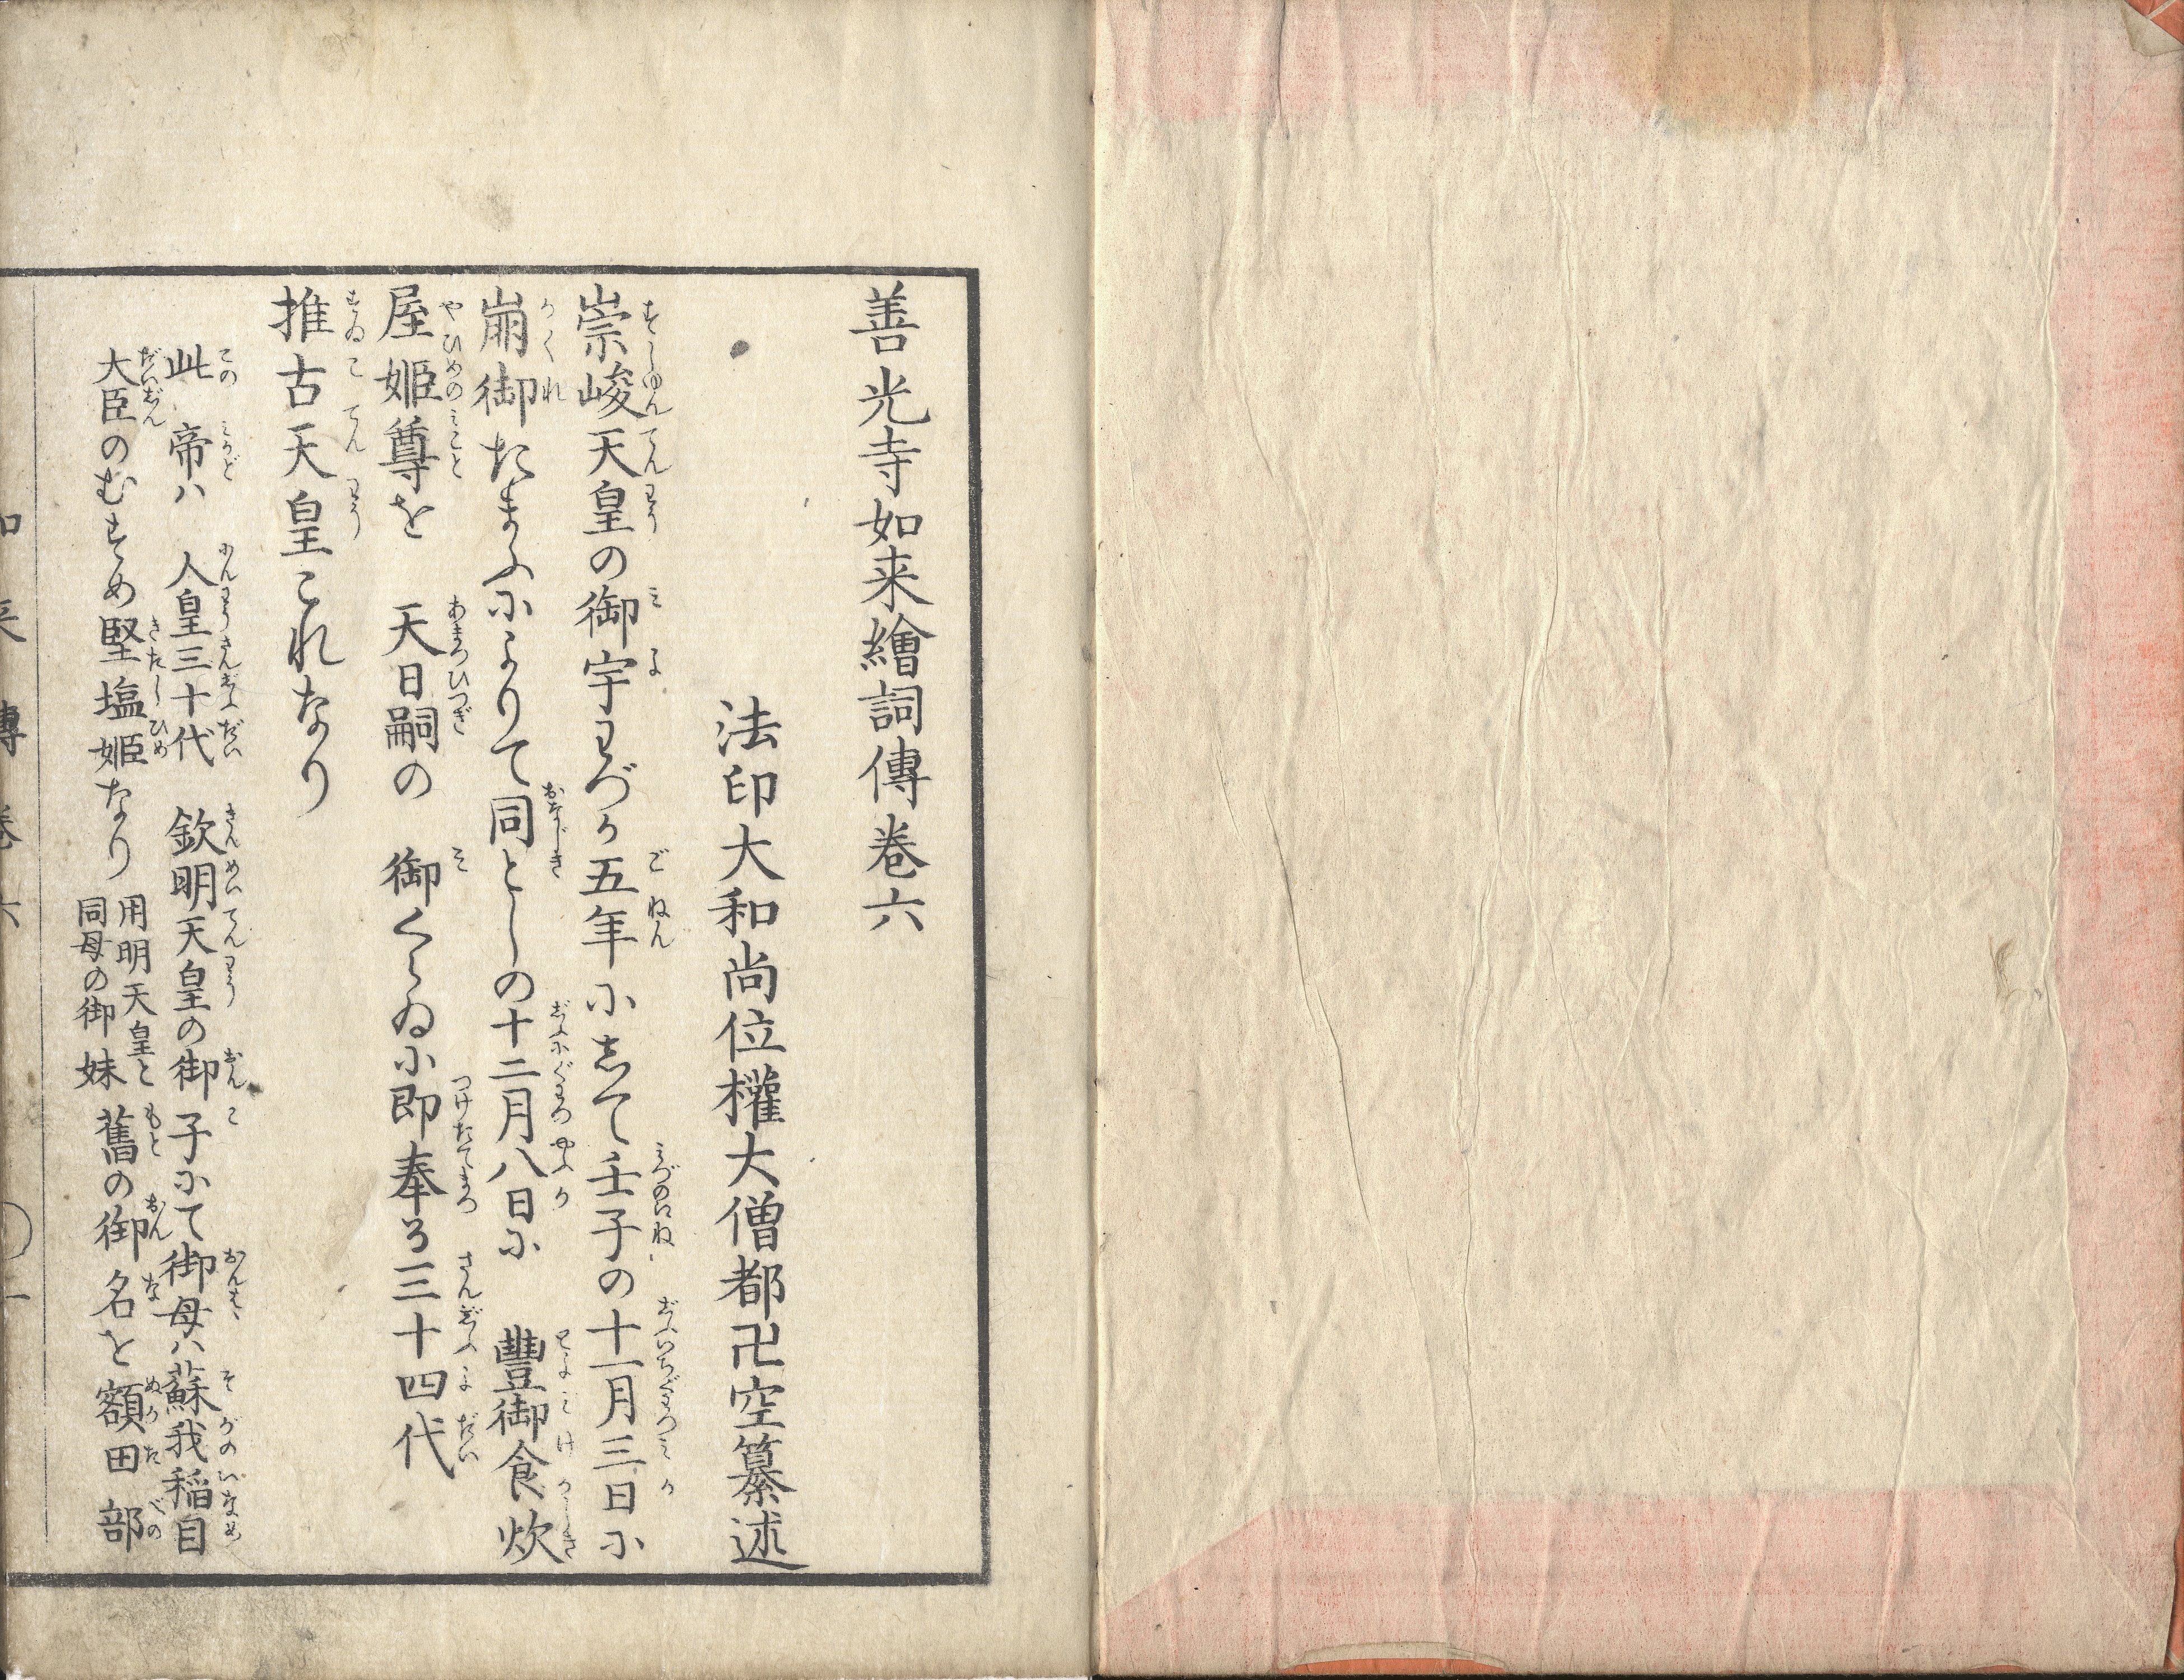 善光寺如来繪詞傳巻六
法印大和尚位權大僧都卍空纂述
崇峻天皇の御宇わづか五年にして壬子の十一月三日に
崩御たまふによりて同としの十二月八日に　豐御食炊
屋姫尊を　天日嗣の　御くらゐに即奉る三十四代
推古天皇これなり
此　帝ハ　人皇三十代　欽明天皇の御子にて御母ハ蘇我稲目
大臣のむすめ堅塩姫なり
用明天皇と
同母の御妹
舊の御名を額田部
如来傳巻六　一